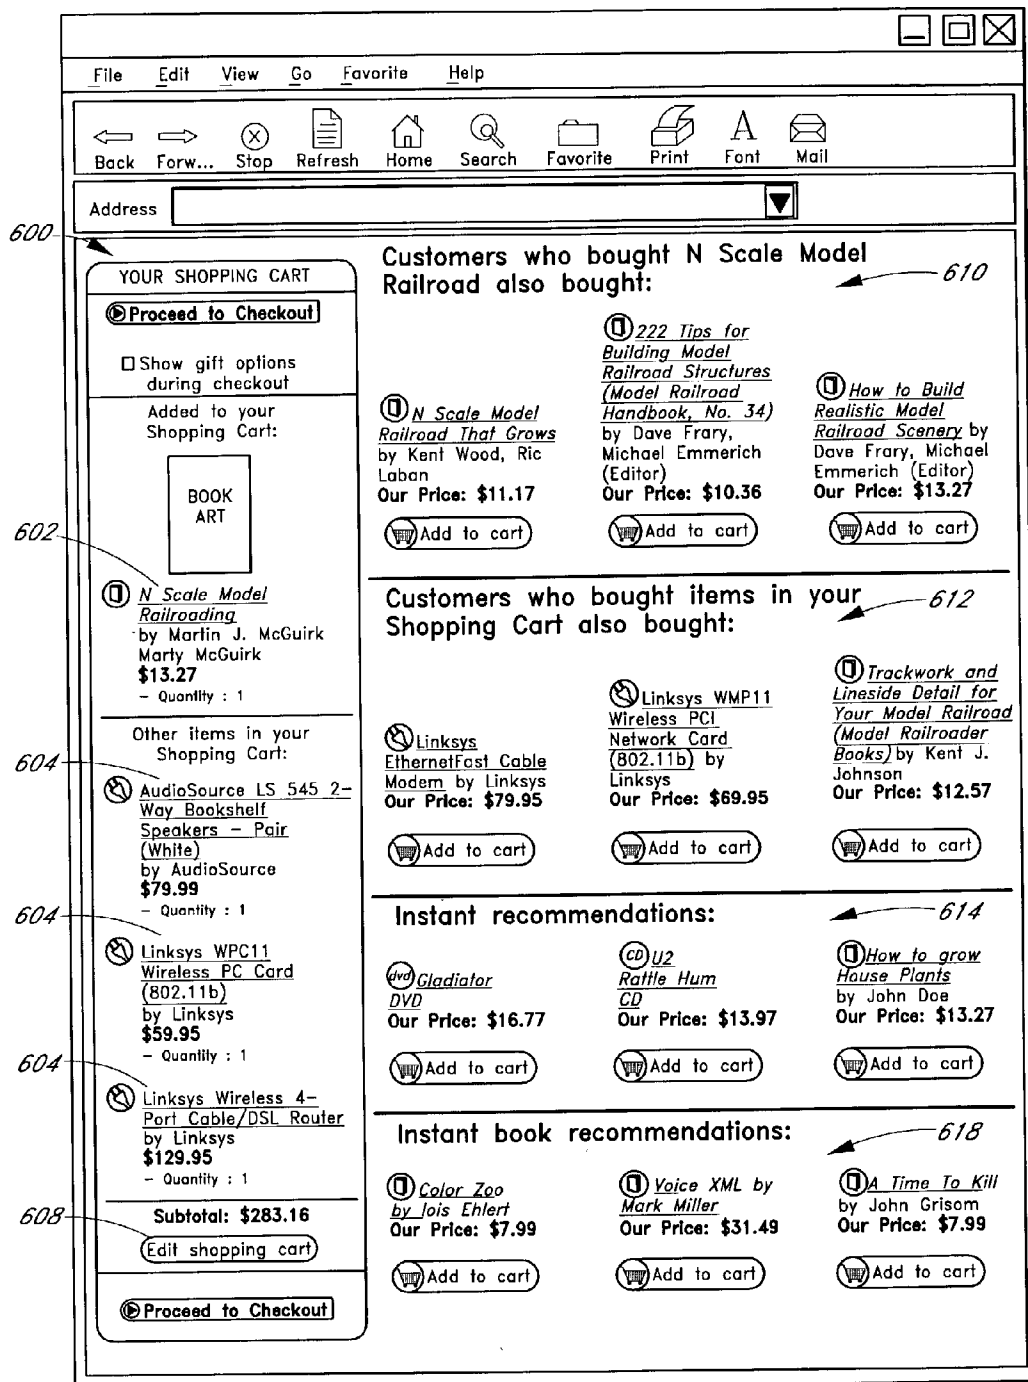 File Edit View Go Favorite Help
Back Forw... Stop Refresh Home Search Favorite Print Font Mail
Address
600
YOUR SHOPPING CART
Proceed to Checkout
Show gift options
during checkout
Added to your
Shopping Cart:
BOOK
ART
602
N Scale Model
Railroading
by Marlin J. McGuirk
Marty McGuirk
$13.27
- Quantity : 1
Other items in your
Shopping Cart:
604
AudioSource LS 545 2-
Way Bookshelf
Speakers - Pair
(White)
by AudioSource
$79.99
- Quantity : 1
604
Linksys WPC11
Wireless PC Card
(802.11b)
by Linksys
$59.95
- Quantity : 1
604
Linksys Wireless 4-
Port Cable/DSL Router
by Linksys
$129.95
- Quantity : 1
Subtotal: $283.16
608
Edit shopping cart
Proceed to Checkout
Customers who bought N Scale Model
Railroad also bought:
610
N Scale Model
Railroad That Grows
by Kent Wood, Ric
Laban
Our Price: $11.17
Add to cart
222 Tips for
Building Model
Railroad Structures
(Model Railroad
Handbook, No. 34)
by Dave Frary,
Michael Emmerich
(Editor)
Our Price: $10.36
Add to cart
How to Build
Realistic Model
Railroad Scenery by
Dave Frary, Michael
Emmerich (Editor)
Our Price: $13.27
Add to cart
Customers who bought items in your
Shopping Cart also bought:
612
Linksys
EthernetFast Cable
Modem by Linksys
Our Price: $79.95
Add to cart
Linksys WMP11
Wireless PCI
Network Card
(802.11b) by
Linksys
Our Price: $69.95
Add to cart
Trackwork and
Lineside Detail for
Your Model Railroad
(Model Railroader
Books) by Kent J.
Johnson
Our Price: $12.57
Add to cart
Instant recommendations:
614
dvd Gladiator
DVD
Our Price: $16.77
Add to cart
CD U2
Rattle Hum
CD
Our Price: $13.97
Add to cart
How to grow
House Plants
by John Doe
Our Price: $13.27
Add to cart
Instant book recommendations:
618
Color Zoo
by lois Ehlert
Our Price: $7.99
Add to cart
Voice XML by
Mark Miller
Our Price: $31.49
Add to cart
A Time To Kill
by John Grisom
Our Price: $7.99
Add to cart